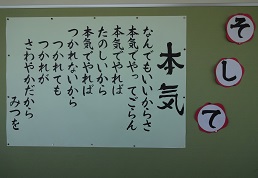 そして
本気
なんでもいいからさ
本気でやってごらん
本気でやれば
たのしいから
本気でやれば
つかれないから
つかれても
つかれが
さわやかだから
みつを